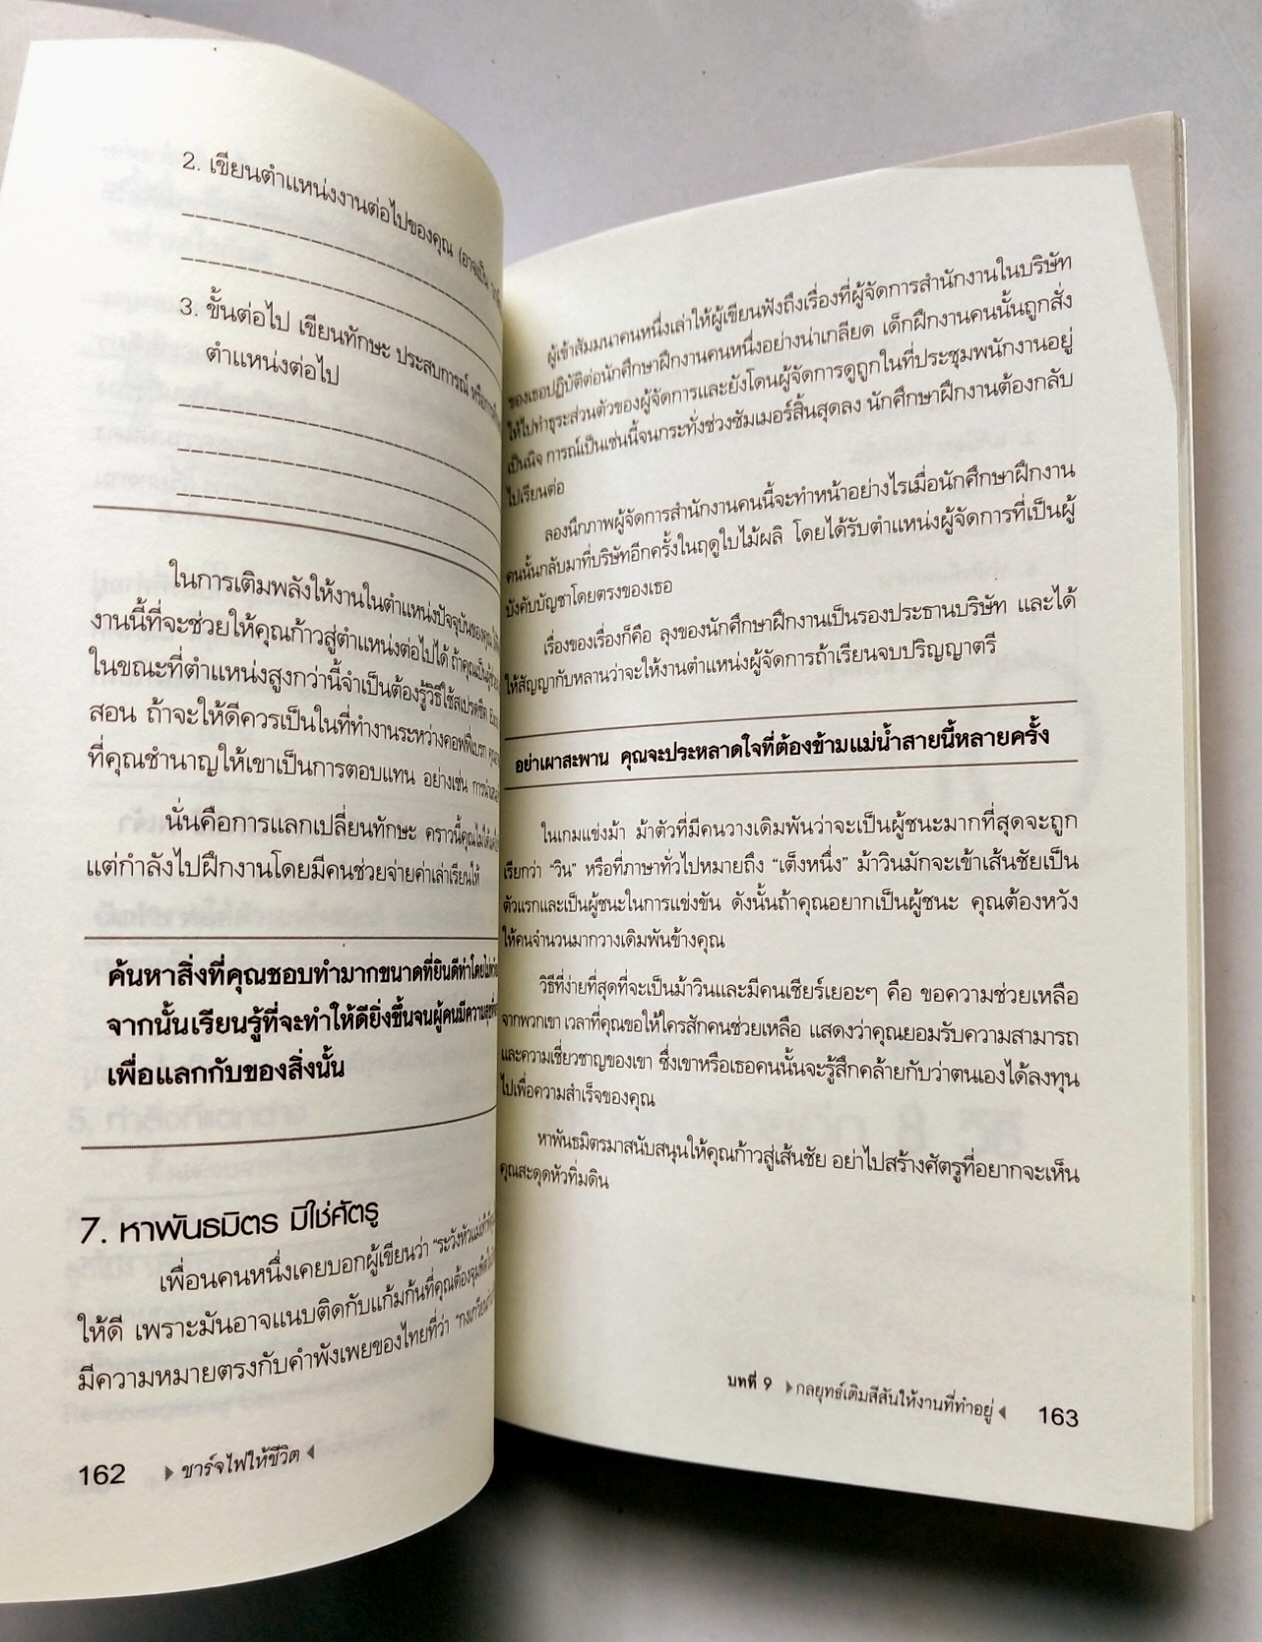 2. เขียนตำแหน่งงานต่อไปของคุณ (อาจเป็น
3. ขั้นต่อไป เขียนทักษะ ประสบการณ์
ตำแหน่งต่อไป
ในการเติมพลังให้งานในตำแหน่งปัจจุบันของคุณ
งานนี้ที่จะช่วยให้คุณก้าวสู่ตำแหน่งต่อไปได้ ถ้าคุณเป็น
ในขณะที่ตำแหน่งสูงกว่านี้จำเป็นต้องรู้วิธีใช้สเปรดชีต
สอน ถ้าจะให้ดีควรเป็นในที่ทำงานระหว่างคอฟฟี่เบรก
ที่คุณชำนาญให้เขาเป็นการตอบแทน อย่างเช่น
นั่นคือการแลกเปลี่ยนทักษะ คราวนี้คุณไม่ได้
แต่กำลังไปฝึกงานโดยมีคนช่วยจ่ายค่าเล่าเรียนให้
ค้นหาสิ่งที่คุณชอบทำมากขนาดที่ยินดีทำโดยไม่
จากนั้นเรียนรู้ที่จะทำให้ดียิ่งขึ้นจนผู้คนมีความสุข
เพื่อแลกกับของสิ่งนั้น
7. หาพันธมิตร มิใช่ศัตรู
เพื่อนคนหนึ่งเคยบอกผู้เขียนว่า "ระวังหัวแม่เท้า
ให้ดี เพราะมันอาจแนบติดกับแก้มก้นที่คุณต้องจุมพิต
มีความหมายตรงกับคำพังเพยของไทยที่ว่า
162 ชาร์จไฟให้ชีวิต
ผู้เข้าสัมมนาคนหนึ่งเล่าให้ผู้เขียนฟังถึงเรื่องที่ผู้จัดการสำนักงานในบริษัท
ของเธอปฏิบัติต่อนักศึกษาฝึกงานคนหนึ่งอย่างน่าเกลียด เด็กฝึกงานคนนั้นถูกสั่ง
ให้ไปทำธุระส่วนตัวของผู้จัดการและยังโดนผู้จัดการดูถูกในที่ประชุมพนักงานอยู่
เป็นนิจ การณ์เป็นเช่นนี้จนกระทั่งช่วงซัมเมอร์สิ้นสุดลง นักศึกษาฝึกงานต้องกลับ
ไปเรียนต่อ
ลองนึกภาพผู้จัดการสำนักงานคนนี้จะทำหน้าอย่างไรเมื่อนักศึกษาฝึกงาน
คนนั้นกลับมาที่บริษัทอีกครั้งในฤดูใบไม้ผลิ โดยได้รับตำแหน่งผู้จัดการที่เป็นผู้
บังคับบัญชาโดยตรงของเธอ
เรื่องของเรื่องก็คือ ลุงของนักศึกษาฝึกงานเป็นรองประธานบริษัท และได้
ให้สัญญากับหลานว่าจะให้งานตำแหน่งผู้จัดการถ้าเรียนจบปริญญาตรี
อย่าเผาสะพาน คุณจะประหลาดใจที่ต้องข้ามแม่น้ำสายนี้หลายครั้ง
ในเกมแข่งม้า ม้าตัวที่มีคนวางเดิมพันว่าจะเป็นผู้ชนะมากที่สุดจะถูก
เรียกว่า "วิน" หรือที่ภาษาทั่วไปหมายถึง "เต็งหนึ่ง" ม้าวินมักจะเข้าเส้นชัยเป็น
ตัวแรกและเป็นผู้ชนะในการแข่งขัน ดังนั้นถ้าคุณอยากเป็นผู้ชนะ คุณต้องหวัง
ให้คนจำนวนมากวางเดิมพันข้างคุณ
วิธีที่ง่ายที่สุดที่จะเป็นม้าวินและมีคนเชียร์เยอะๆ คือ ขอความช่วยเหลือ
จากพวกเขา เวลาที่คุณขอให้ใครสักคนช่วยเหลือ แสดงว่าคุณยอมรับความสามารถ
และความเชี่ยวชาญของเขา ซึ่งเขาหรือเธอคนนั้นจะรู้สึกคล้ายกับว่าตนเองได้ลงทุน
ไปเพื่อความสำเร็จของคุณ
หาพันธมิตรมาสนับสนุนให้คุณก้าวสู่เส้นชัย อย่าไปสร้างศัตรูที่อยากจะเห็น
คุณสะดุดหัวทิ่มดิน
บทที่ 9 กลยุทธ์เติมสีสันให้งานที่ทำอยู่ 163